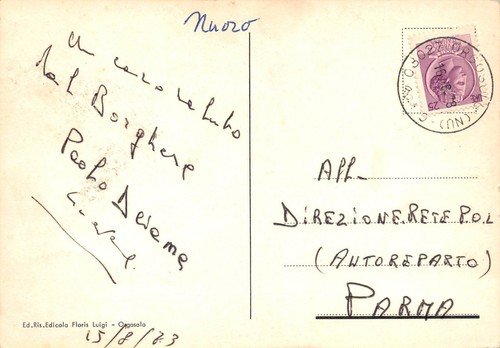 Nuoro
Un caro saluto
dal Borghese
Paolo
08027 ORGOSOLO (NU)
25
All.
DIREZIONE RETE POL
(AUTOREPARTO)
PARMA
Ed. Ris. Edicola Floris Luigi - Orgosolo
15/8/73